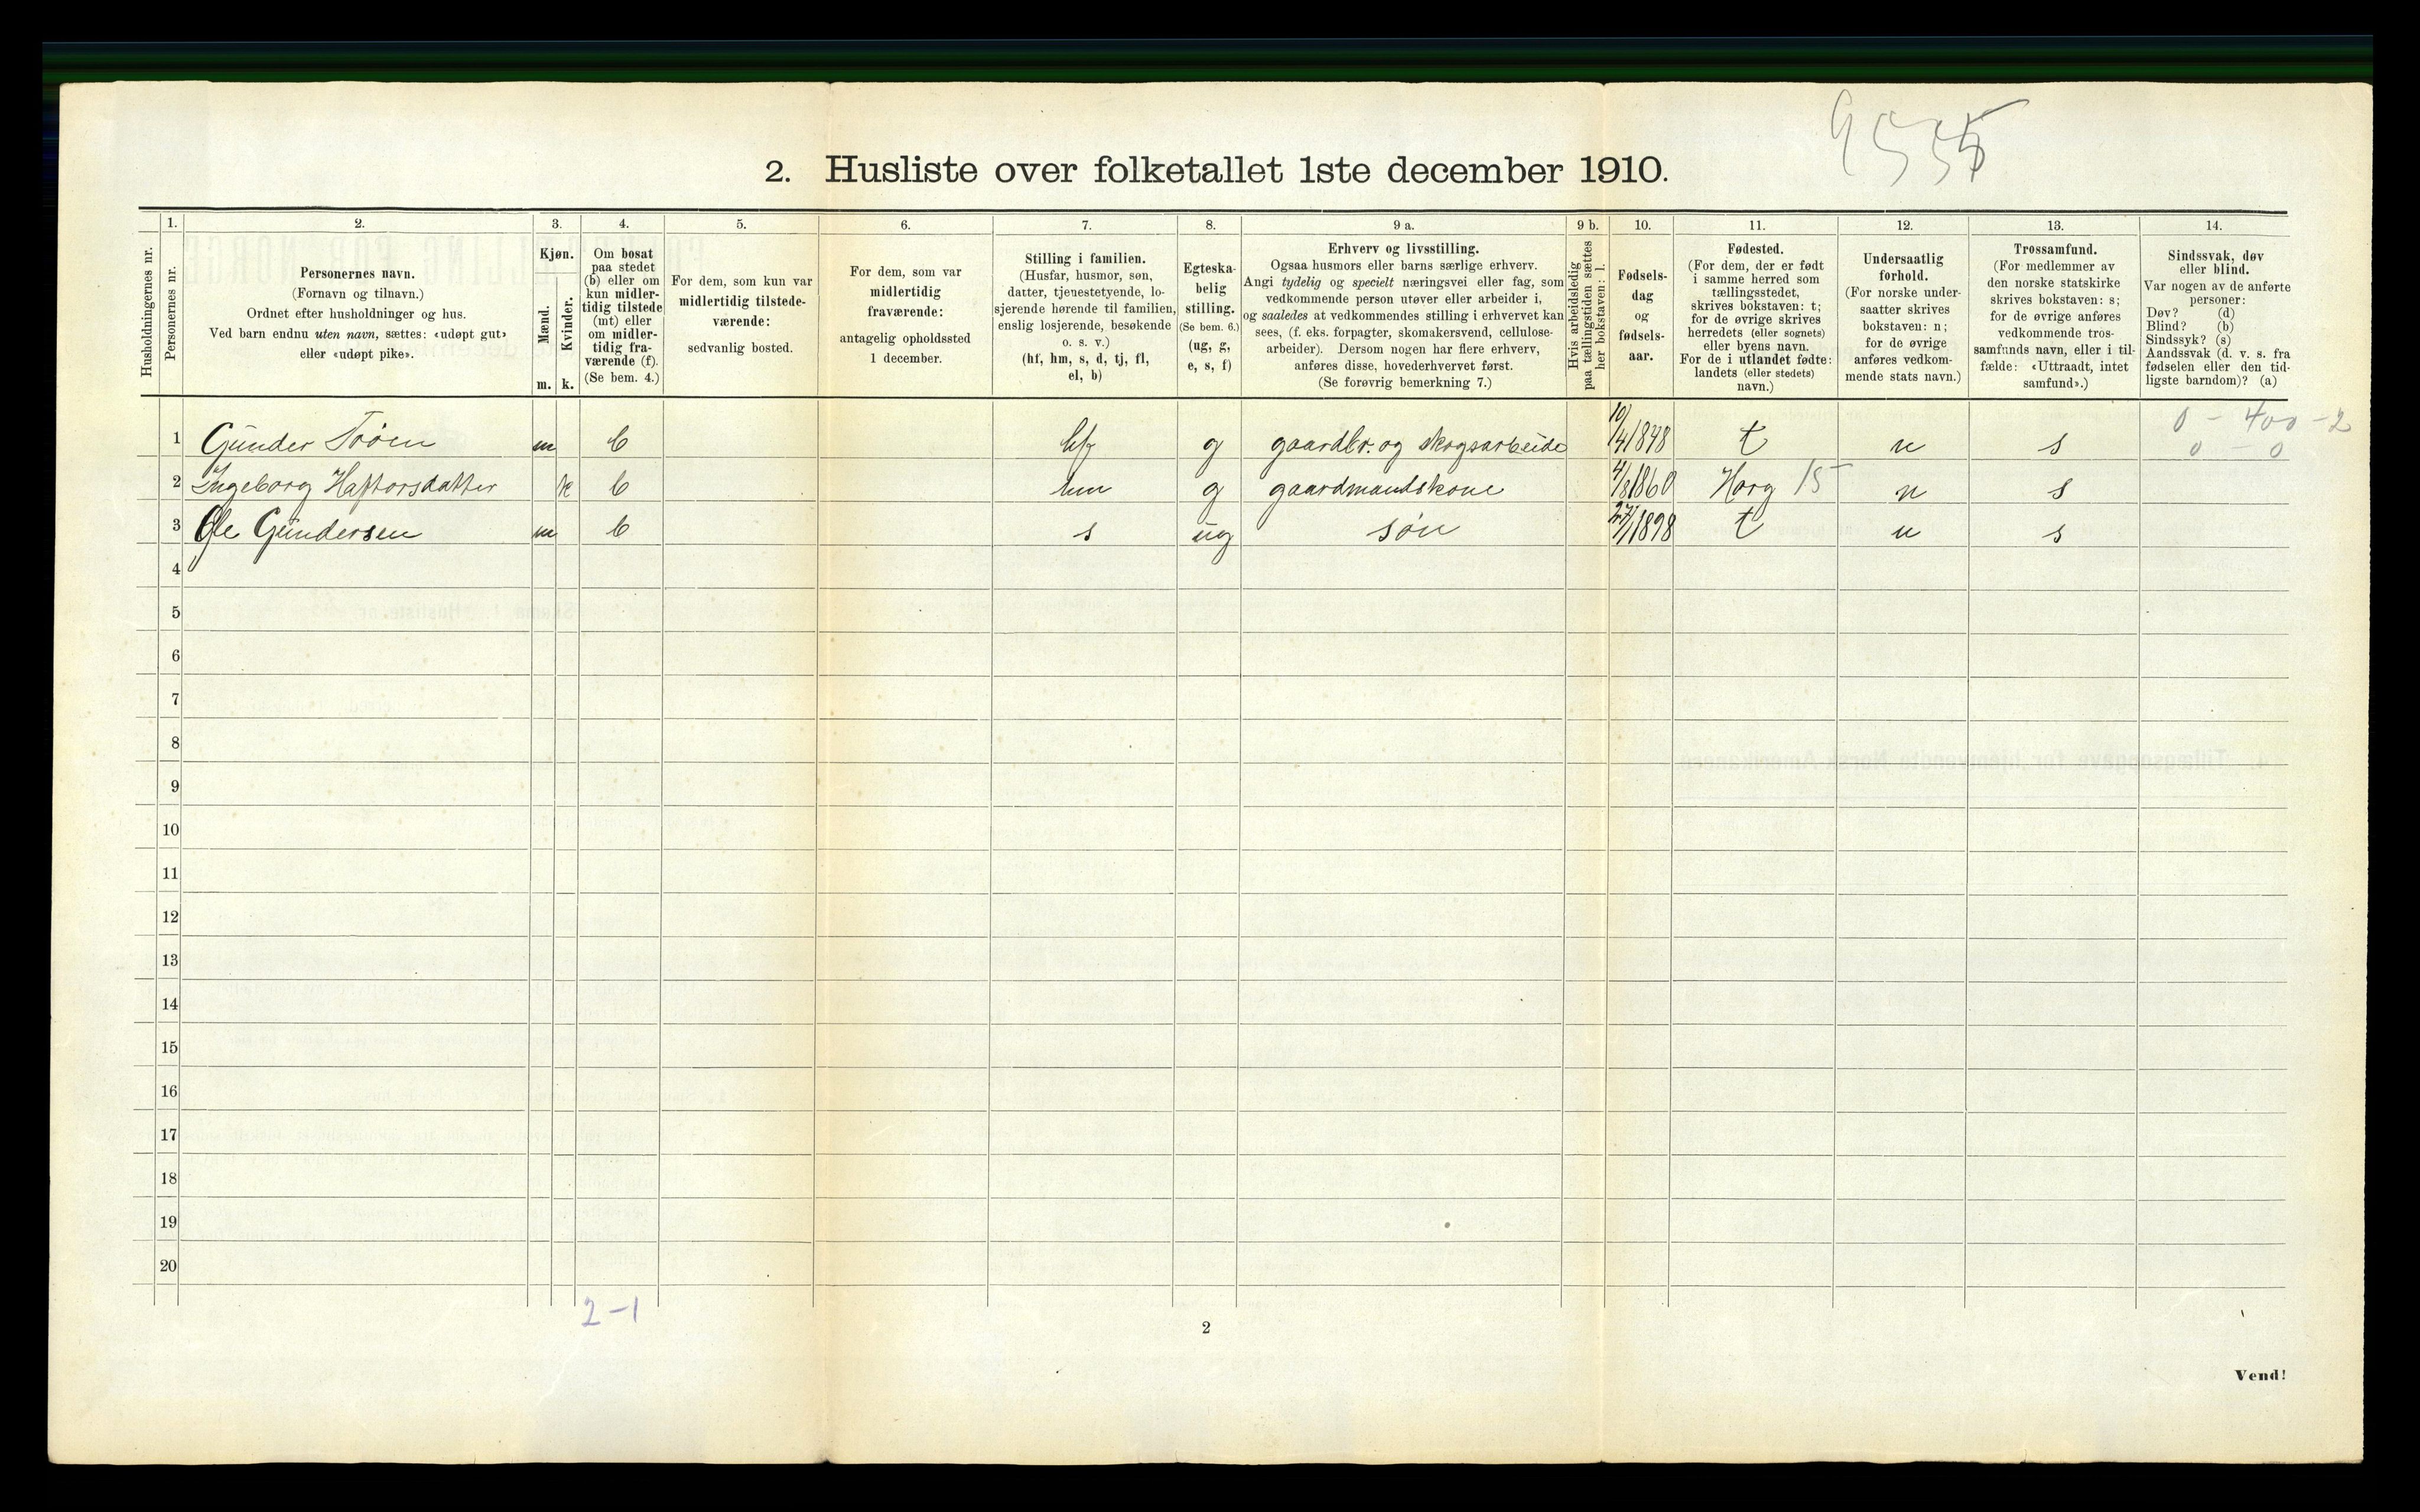 9555
2. Husliste over folketallet 1ste december 1910.
Husholdningernes nr.
1.
Personernes nr.
2.
Personernes navn.
(Fornavn og tilnavn.)
Ordnet efter husholdninger og hus.
Ved barn endnu uten navn, sættes: «udøpt gut»
eller «udøpt pike».
3.
Kjøn.
Mænd.
Kvinder.
m. k.
4.
Om bosat
paa stedet
(b) eller om
kun midler-
tidig tilstede
(mt) eller
om midler-
tidig fra-
værende (f).
(Se bem. 4.)
5.
For dem, som kun var
midlertidig tilstede-
værende:
sedvanlig bosted.
6.
For dem, som var
midlertidig
fraværende:
antagelig opholdssted
1 december.
7.
Stilling i familien.
(Husfar, husmor, søn,
datter, tjenestetyende, lo-
sjerende hørende til familien,
enslig losjerende, besøkende
o. s. v.)
(hf, hm, s, d, tj, fl,
el, b)
8.
Egteska-
belig
stilling.
(Se bem. 6.)
(ug, g,
e, s, f)
9 a.
Erhverv og livsstilling.
Ogsaa husmors eller barns særlige erhverv.
Angi tydelig og specielt næringsvei eller fag, som
vedkommende person utøver eller arbeider i,
og saaledes at vedkommendes stilling i erhvervet kan
sees, (f. eks. forpagter, skomakersvend, cellulose-
arbeider). Dersom nogen har flere erhverv,
anføres disse, hovederhvervet først.
(Se forøvrig bemerkning 7.)
9 b.
Hvis arbeidsledig
paa tællingstiden sættes
her bokstaven: l.
10.
Fødsels-
dag
og
fødsels-
aar.
11.
Fødested.
(For dem, der er født
i samme herred som
tællingsstedet,
skrives bokstaven: t;
for de øvrige skrives
herredets (eller sognets)
eller byens navn.
For de i utlandet fødte:
landets (eller stedets)
navn.)
12.
Undersaatlig
forhold.
(For norske under-
saatter skrives
bokstaven: n;
for de øvrige
anføres vedkom-
mende stats navn.)
13.
Trossamfund.
(For medlemmer av
den norske statskirke
skrives bokstaven: s;
for de øvrige anføres
vedkommende tros-
samfunds navn, eller i til-
fælde: «Uttraadt, intet
samfund».)
14.
Sindssvak, døv
eller blind.
Var nogen av de anførte
personer:
Døv? (d)
Blind? (b)
Sindssyk? (s)
Aandssvak (d. v. s. fra
fødselen eller den tid-
ligste barndom)? (a)
0 - 400 - 2
0 - 0
1 Gunder Troen m b hf g gaardbr. og skogsarbeide 10/4 1848 t n s
2 Ingeborg Haftorsdatter k b hm g gaardmandskone 4/8 1860 Horg 15 n s
3 Ole Gundersen m b s ug søn 27/1 1898 t n s
4
5
6
7
8
9
10
11
12
13
14
15
16
17
18
19
20
2-1
2
Vend!